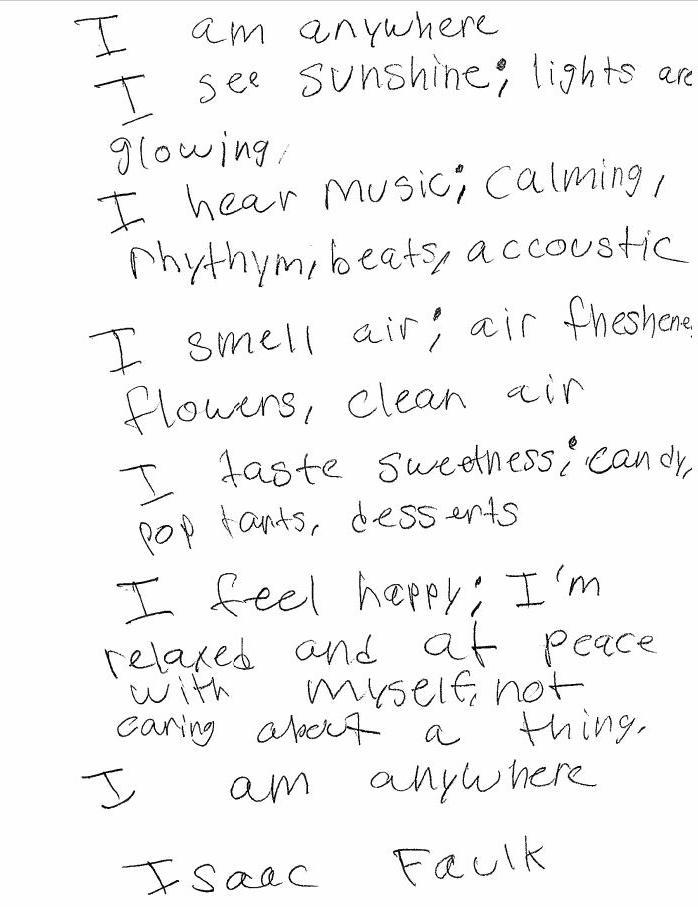 I am anywhere
I see sunshine; lights are
glowing,
I hear music; calming,
rhythym, beats, accoustic
I smell air; air fheshene
flowers, clean air
I taste sweetness; candy,
pop tarts, desserts
I feel happy; I'm
relaxed and at peace
with myself, not
caring about a thing.
I am anywhere
Isaac Faulk